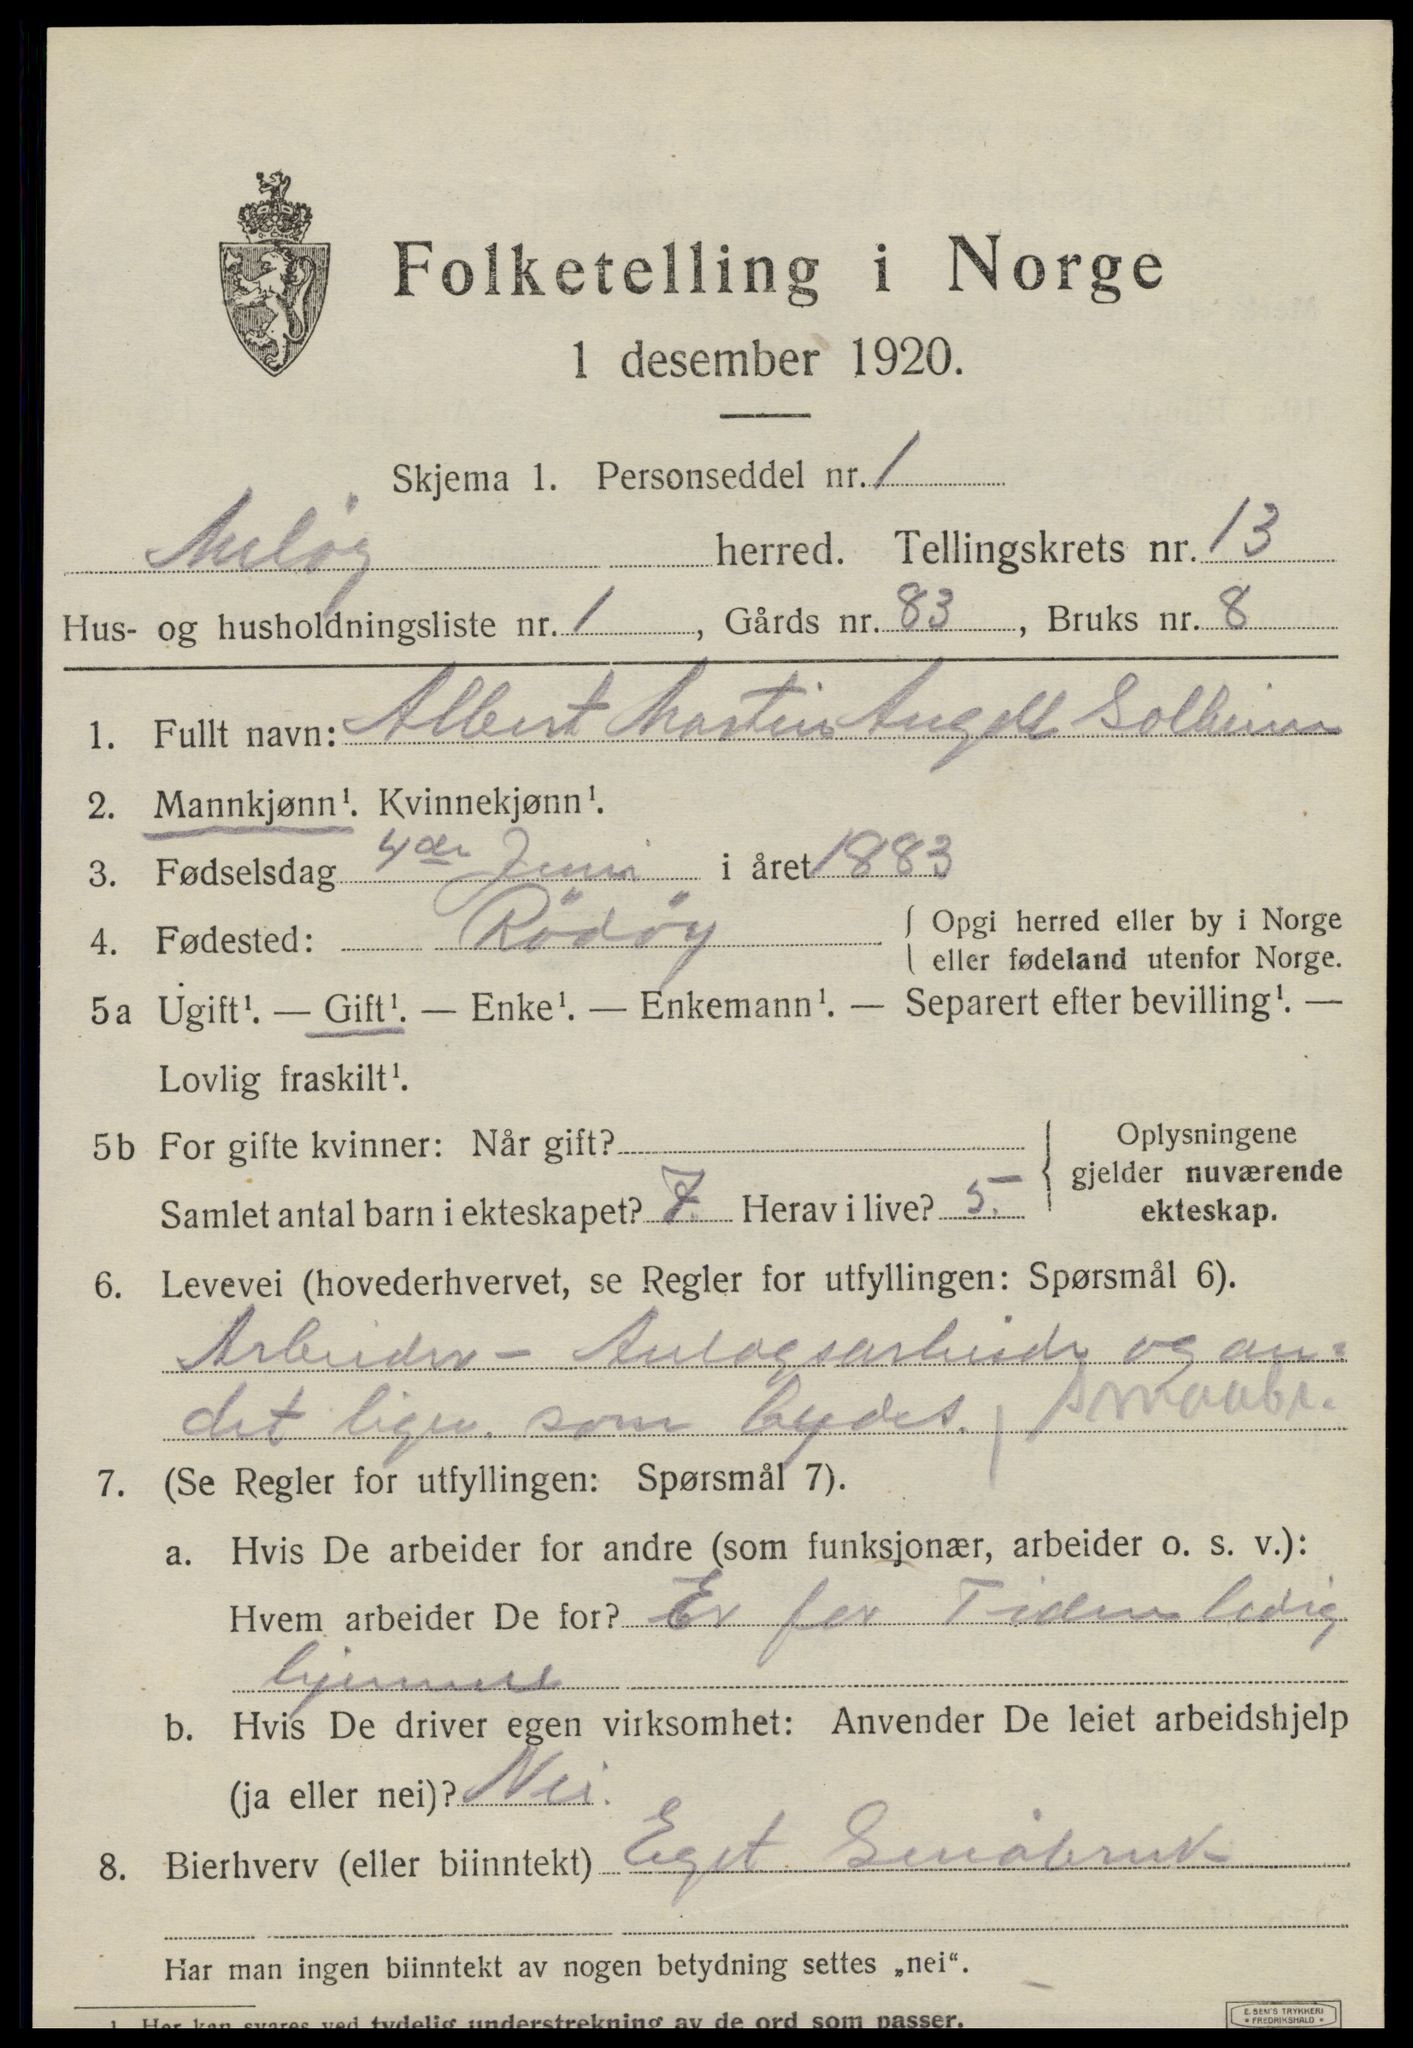 Folketelling i Norge
1 desember 1920.
Skjema 1. Personseddel nr. 1
Meløy herred. Tellingskrets nr. 13
Hus- og husholdningsliste nr. 1, Gårds nr. 83, Bruks nr. 8
1. Fullt navn: Albert Martin Angell Solheim
2. Mannkjønn¹. Kvinnekjønn¹.
3. Fødselsdag 4de Juni i året 1883
4. Fødested: Rödöy { Opgi herred eller by i Norge
eller fødeland utenfor Norge.
5a Ugift¹. — Gift¹. — Enke¹. — Enkemann¹. — Separert efter bevilling¹. —
Lovlig fraskilt¹.
5b For gifte kvinner: Når gift? { Oplysningene
gjelder nuværende
Samlet antal barn i ekteskapet? 7. Herav i live? 5. ekteskap.
6. Levevei (hovederhvervet, se Regler for utfyllingen: Spørsmål 6).
Arbeider - Anlægsarbeide og an=
det lign. som bydes. / smaabr.
7. (Se Regler for utfyllingen: Spørsmål 7).
a. Hvis De arbeider for andre (som funksjonær, arbeider o. s. v.):
Hvem arbeider De for? Er for Tiden ledig
hjemme
b. Hvis De driver egen virksomhet: Anvender De leiet arbeidshjelp
(ja eller nei)? Nei.
8. Bierhverv (eller biinntekt) Eget Småbruk
Har man ingen biinntekt av nogen betydning settes „nei“.
1 Her kan svares ved tydelig understrekning av de ord som passer.
E. SEM'S TRYKKERI
* FREDRIKSHALD *